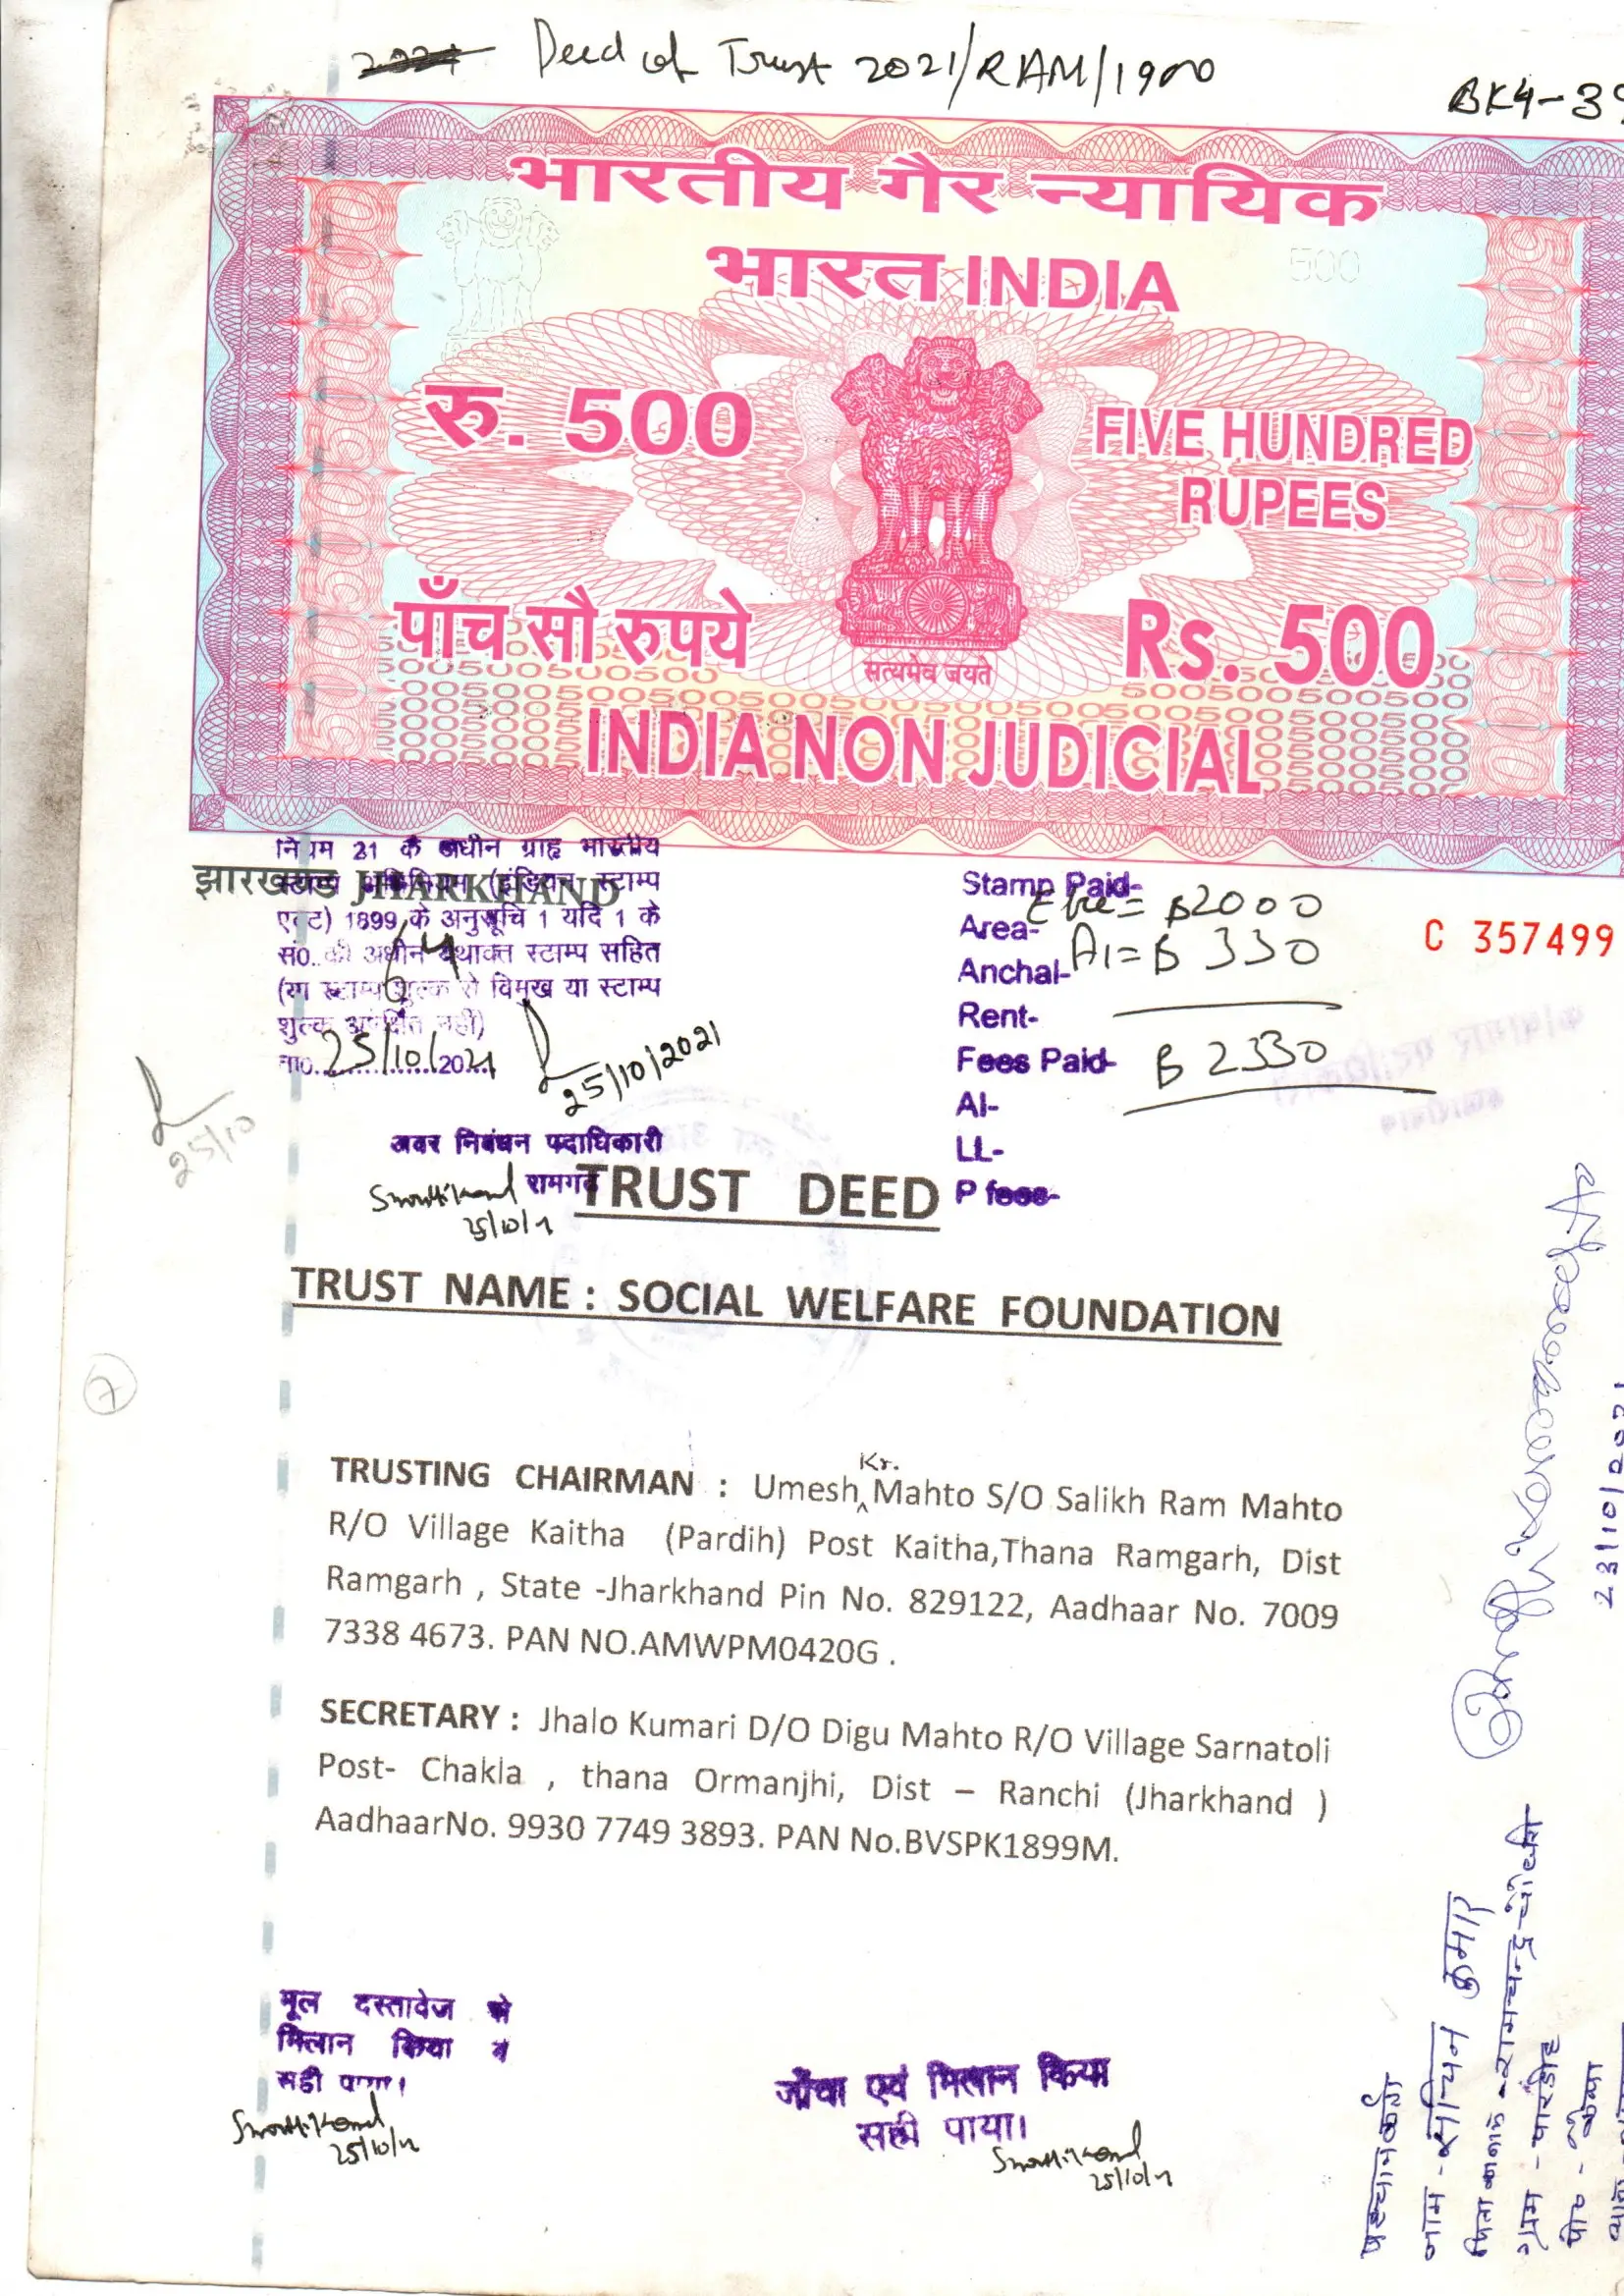 Deed of Trust 2021/RAM/1900
BK4-39
भारतीय गैर न्यायिक
भारत INDIA
500
रु. 500
FIVE HUNDRED
RUPEES
पाँच सौ रुपये
Rs. 500
सत्यमेव जयते
INDIA NON JUDICIAL
झारखण्ड JHARKHAND
नियम 21 के अधीन ग्राह्य भारतीय
(इंडियन स्टाम्प
एक्ट) 1899 के अनुसूचि 1 यदि 1 के
सं0..की अधीन यथोक्त स्टाम्प सहित
64
(या स्टाम्प शुल्क से विमुख या स्टाम्प
शुल्क अपेक्षित नहीं)
ता0. 25/10/2021
25/10/2021
25/10
अवर निबंधन पदाधिकारी
रामगढ़
25/10/21
Stamp Paid-
Area- = ₨2000
Anchal- A1= ₨ 330
Rent-
Fees Paid- ₨ 2330
AI-
LL-
P fees-
C 357499
TRUST DEED
TRUST NAME : SOCIAL WELFARE FOUNDATION
7
TRUSTING CHAIRMAN : Umesh Kr. Mahto S/O Salikh Ram Mahto
R/O Village Kaitha (Pardih) Post Kaitha,Thana Ramgarh, Dist
Ramgarh , State -Jharkhand Pin No. 829122, Aadhaar No. 7009
7338 4673. PAN NO.AMWPM0420G .
SECRETARY : Jhalo Kumari D/O Digu Mahto R/O Village Sarnatoli
Post- Chakla , thana Ormanjhi, Dist – Ranchi (Jharkhand )
AadhaarNo. 9930 7749 3893. PAN No.BVSPK1899M.
मूल दस्तावेज से
मिलान किया व
सही पाया।
25/10/21
जाँचा एवं मिलान किया
सही पाया।
25/10/21
23/10/2021
पहचानकर्ता
नाम - सचिन कुमार
पिता का नाम - रामचन्द्र
ग्राम - पारडीह
पो० - कैथा